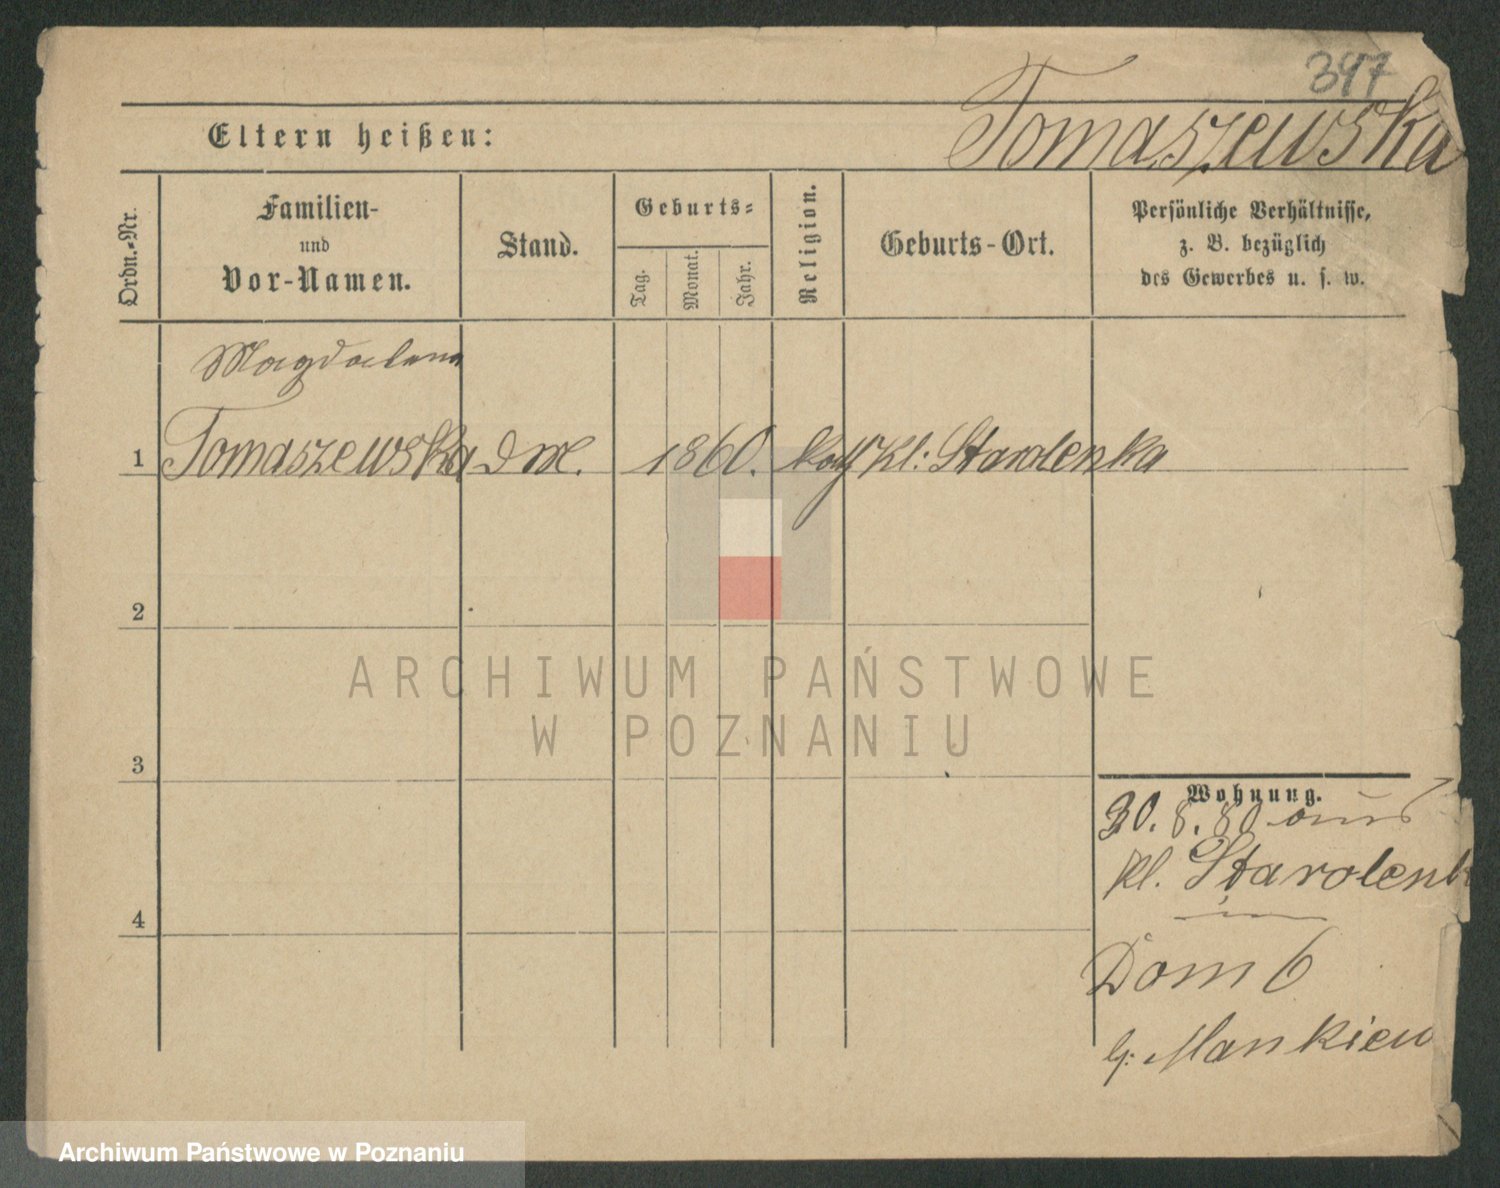 397
Tomaszewska
Eltern heißen:
Ordn.-Nr.
Familien-
und
Vor-Namen.
Stand.
Geburts-
Tag.
Monat.
Jahr.
Religion.
Geburts-Ort.
Persönliche Verhältnisse,
z. B. bezüglich
des Gewerbes u. s. w.
Magdalena
1 Tomaszewska D M. 1860. kath Kl: Starolenka
2
3
4
ARCHIWUM PAŃSTWOWE
W POZNANIU
Wohnung.
30. 8. 80 aus
Kl. Starolenk
in
Dom 6
b: Mankiew
Archiwum Państwowe w Poznaniu